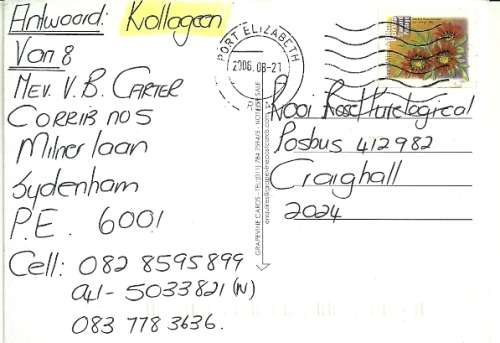 Antwoord: Kollageen
Van 8
Mev. V. B. Carter
Corrib no 5
Milner laan
Sydenham
P.E. 6001
Cell: 082 8595899
041- 5033821 (N)
083 778 3636.
PORT ELIZABETH
2006.08-21
Rooi Rose/
Posbus 412982
Craighall
2024
GRAPEVINE CARDS - TEL (011)